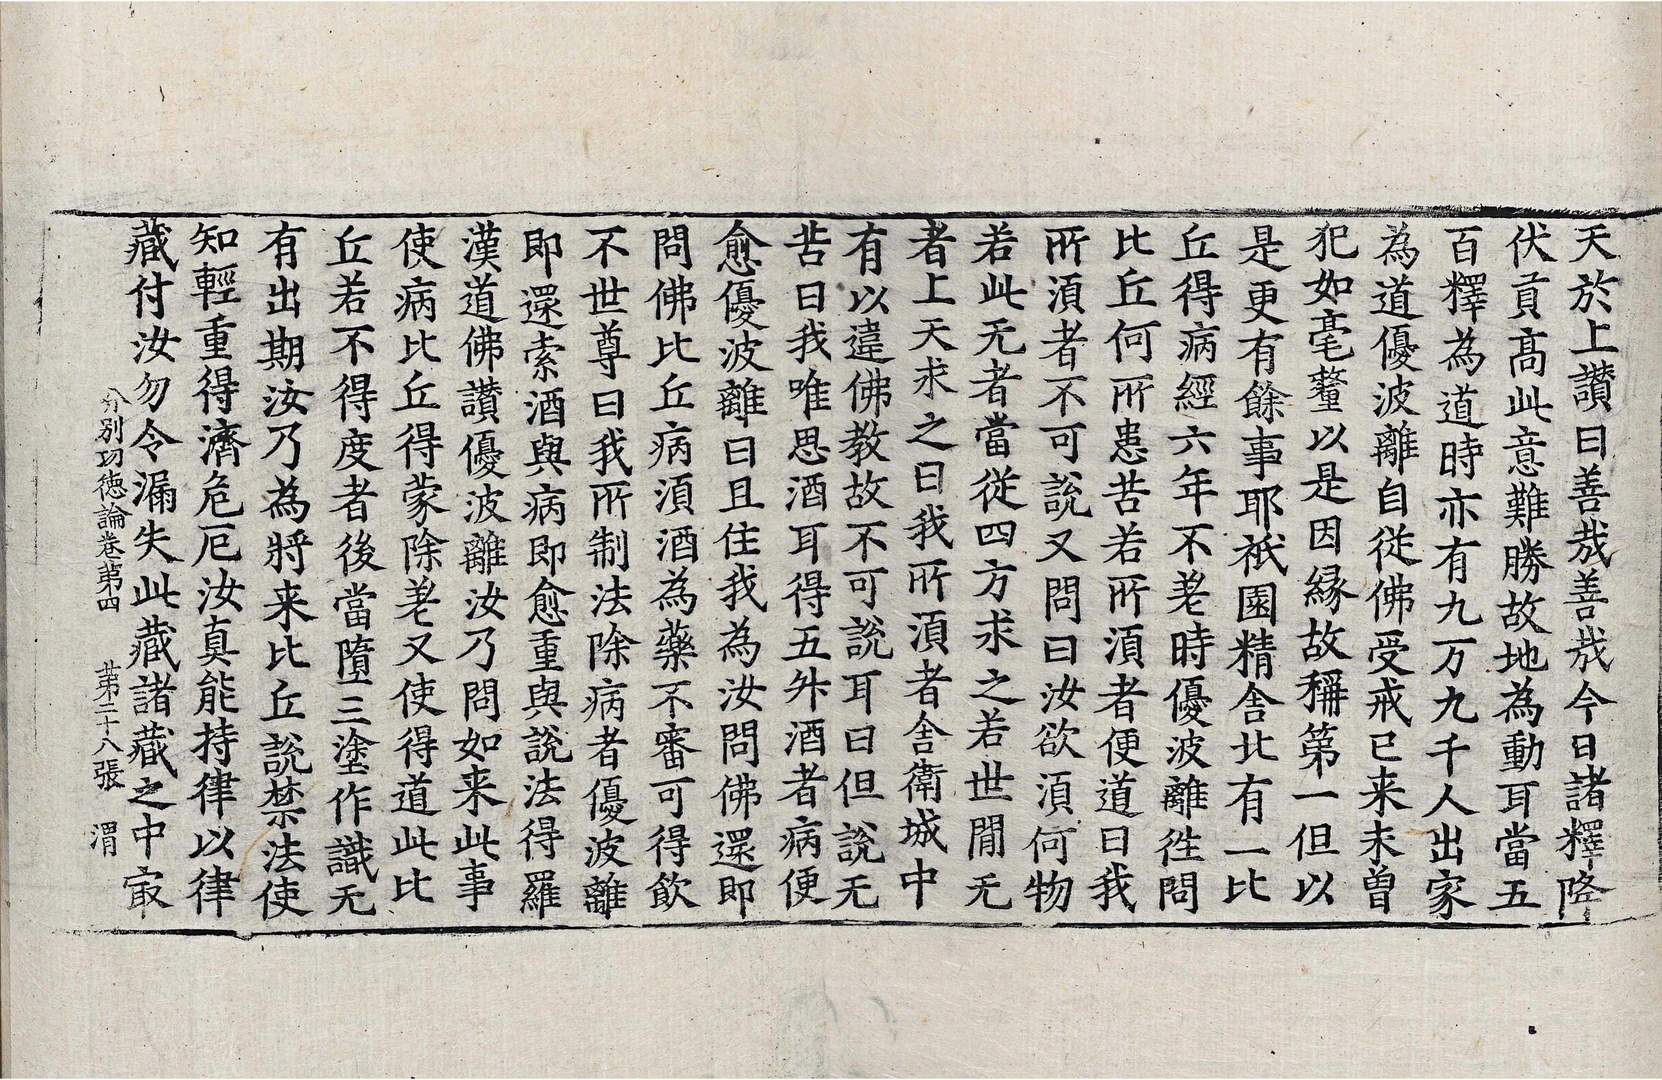 天於上讚曰善哉善哉今日諸釋降
伏貢高此意難勝故地為動耳當五
百釋為道時亦有九万九千人出家
為道優波離自從佛受戒已来未曾
犯如毫釐以是因縁故稱第一但以
是更有餘事耶祇園精舍北有一比
丘得病經六年不差時優波離往問
比丘何所患苦若所湏者便道曰我
所湏者不可說又問曰汝欲湏何物
若此无者當從四方求之若世閒无
者上天求之曰我所湏者舍衛城中
有以違佛教故不可說耳曰但說无
苦曰我唯思酒耳得五升酒者病便
愈優波離曰且住我為汝問佛還即
問佛比丘病湏酒為藥不審可得飲
不世尊曰我所制法除病者優波離
即還索酒與病即愈重與說法得羅
漢道佛讚優波離汝乃問如来此事
使病比丘得蒙除差又使得道此比
丘若不得度者後當墮三塗作識无
有出期汝乃為將来比丘說禁法使
知輕重得濟危厄汝真能持律以律
藏付汝勿令漏失此藏諸藏之中㝡
分別功德論卷第四 第二十八張 渭